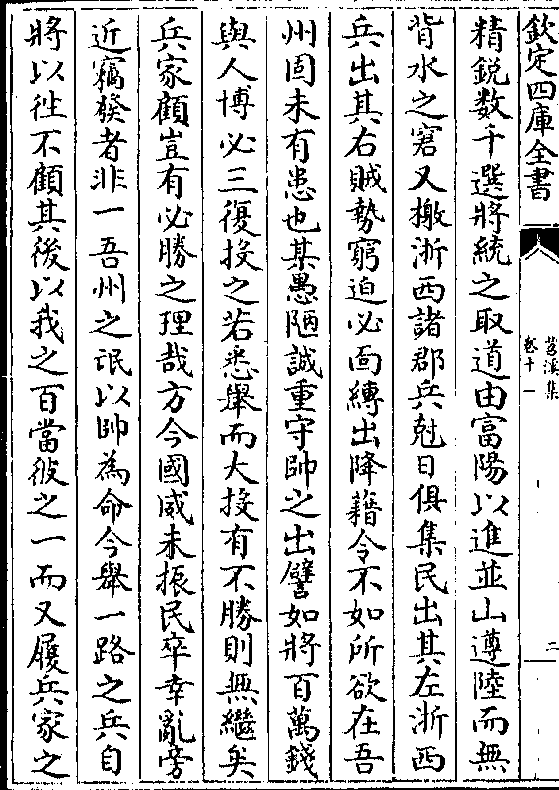 欽定四庫全書
苕溪集
卷十一
二
精鋭数千選將統之取道由富陽以進並山遵陸而無
背水之窘又撽浙西諸郡兵尅日俱集民出其左浙西
兵出其右賊勢窮迫必面縛出降藉令不如所欲在吾
州固未有患也某愚陋誠重守帥之出譬如將百萬錢
與人博必三復投之若悉舉而大投有不勝則無繼矣
兵家顧豈有必勝之理哉方今國威未振民卒幸亂旁
近竊發者非一吾州之氓以帥為命今舉一路之兵自
將以徃不顧其後以我之百當彼之一而又履兵家之